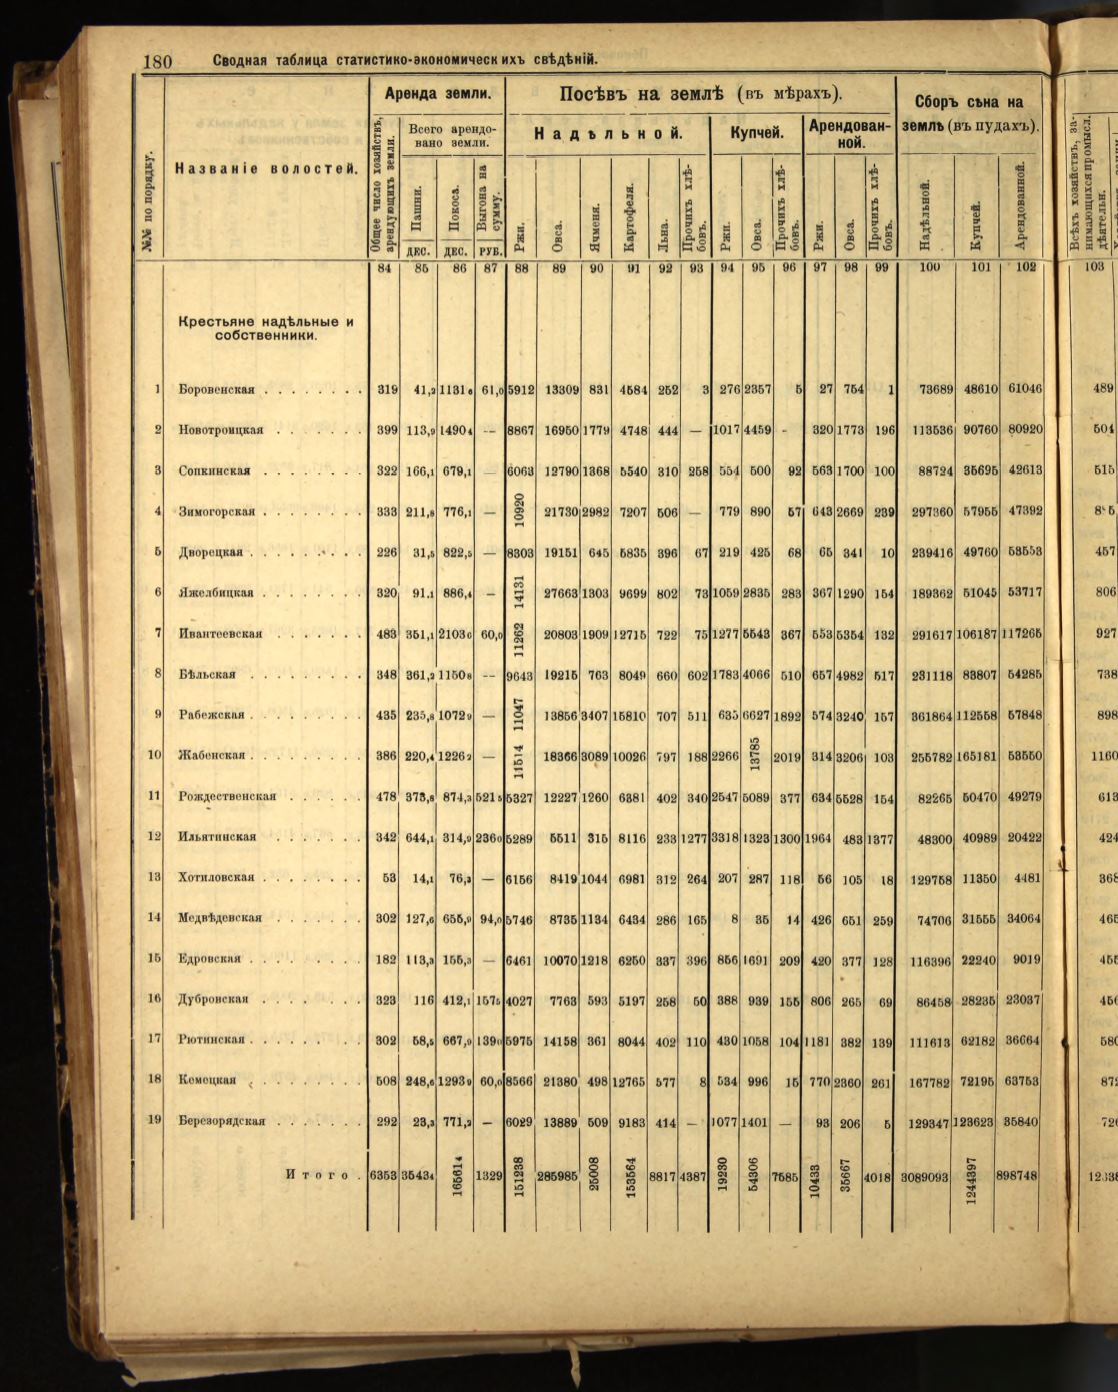 180 Сводная таблица статистико-экономическихъ свѣдѣній.
№№ по порядку.
Названіе волостей.
Аренда земли.
Общее число хозяйствъ, арендующихъ земли.
Всего арендовано земли.
Пашни. дес.
Покоса. дес.
Выгона на сумму. руб.
Посѣвъ на землѣ (въ мѣрахъ).
Надѣльной.
Ржи. Овса. Ячменя. Картофеля. Льна. Прочихъ хлѣбовъ.
Купчей.
Ржи. Овса. Прочихъ хлѣбовъ.
Арендованной.
Ржи. Овса. Прочихъ хлѣбовъ.
Сборъ сѣна на землѣ (въ пудахъ).
Надѣльной. Купчей. Арендованной.
Всѣхъ хозяйствъ, занимающихся промысл. дѣятельн.
84 85 86 87 88 89 90 91 92 93 94 95 96 97 98 99 100 101 102 103
Крестьяне надѣльные и
собственники.
1 Боровенская 319 41,2 1131,6 61,0 5912 13309 831 4584 252 3 276 2357 5 27 754 1 73689 48610 61046 489
2 Новотроицкая 399 113,9 1490,4 — 8867 16950 1779 4748 444 — 1017 4459 - 320 1773 196 113536 90760 80920 504
3 Сопкинская 322 166,1 679,1 — 6063 12790 1368 5540 310 258 554 500 92 563 1700 100 88724 35695 42613 515
4 Зимогорская 333 211,8 776,1 — 10920 21730 2982 7207 506 — 779 890 57 643 2669 239 297360 57955 47392
5 Дворецкая 226 31,5 822,5 — 8303 19151 645 5835 396 67 219 425 68 65 341 10 239416 49760 53553 457
6 Яжелбицкая 320 91,1 886,4 — 14131 27663 1303 9699 802 73 1059 2835 283 367 1290 154 189362 51045 53717 806
7 Ивантеевская 483 351,1 2103,6 60,0 11262 20803 1909 12715 722 75 1277 5543 367 553 5354 132 291617 106187 117265 927
8 Бѣльская 348 361,2 1150,8 — 9643 19215 763 8049 660 602 1783 4066 510 657 4982 517 231118 83807 54285 738
9 Рабежская 435 235,8 1072,9 — 11047 13856 3407 15810 707 511 635 6627 1892 574 3240 157 361864 112558 57848 898
10 Жабенская 386 220,4 1226,2 — 11514 18366 3089 10026 797 188 2266 13785 2019 314 3206 103 255782 165181 53550 1160
11 Рождественская 478 373,8 874,3 521,5 5327 12227 1260 6381 402 340 2547 5089 377 634 5528 154 82265 50470 49279 613
12 Ильятинская 342 644,1 314,9 236,0 5289 5511 315 8116 233 1277 3318 1323 1300 1964 483 1377 48300 40989 20422 424
13 Хотиловская 53 14,1 76,3 — 6156 8419 1044 6981 312 264 207 287 118 56 105 18 129758 11350 4481 368
14 Медвѣдевская 302 127,6 655,9 94,0 5746 8735 1134 6434 286 165 8 35 14 426 651 259 74706 31555 34064
15 Едровская 182 113,3 155,3 — 6461 10070 1218 6250 337 396 856 1691 209 420 377 128 116396 22240 9019
16 Дубровская 323 116 412,1 157,5 4027 7763 593 5197 258 50 388 939 155 806 265 69 86458 28235 23037
17 Рютинская 302 58,5 667,9 139,0 5975 14158 361 8044 402 110 430 1058 104 1181 382 139 111613 62182 36664
18 Кемецкая 508 248,6 1293,9 60,0 8566 21380 498 12765 577 8 534 996 15 770 2360 261 167782 72195 63753
19 Березорядская 292 23,3 771,2 — 6029 13889 509 9183 414 — 1077 1401 — 93 206 5 129347 123623 35840
Итого 6353 3543,4 16561,4 1329 151238 285985 25008 153564 8817 4387 19230 54306 7585 10433 35667 4018 3089093 1244397 898748